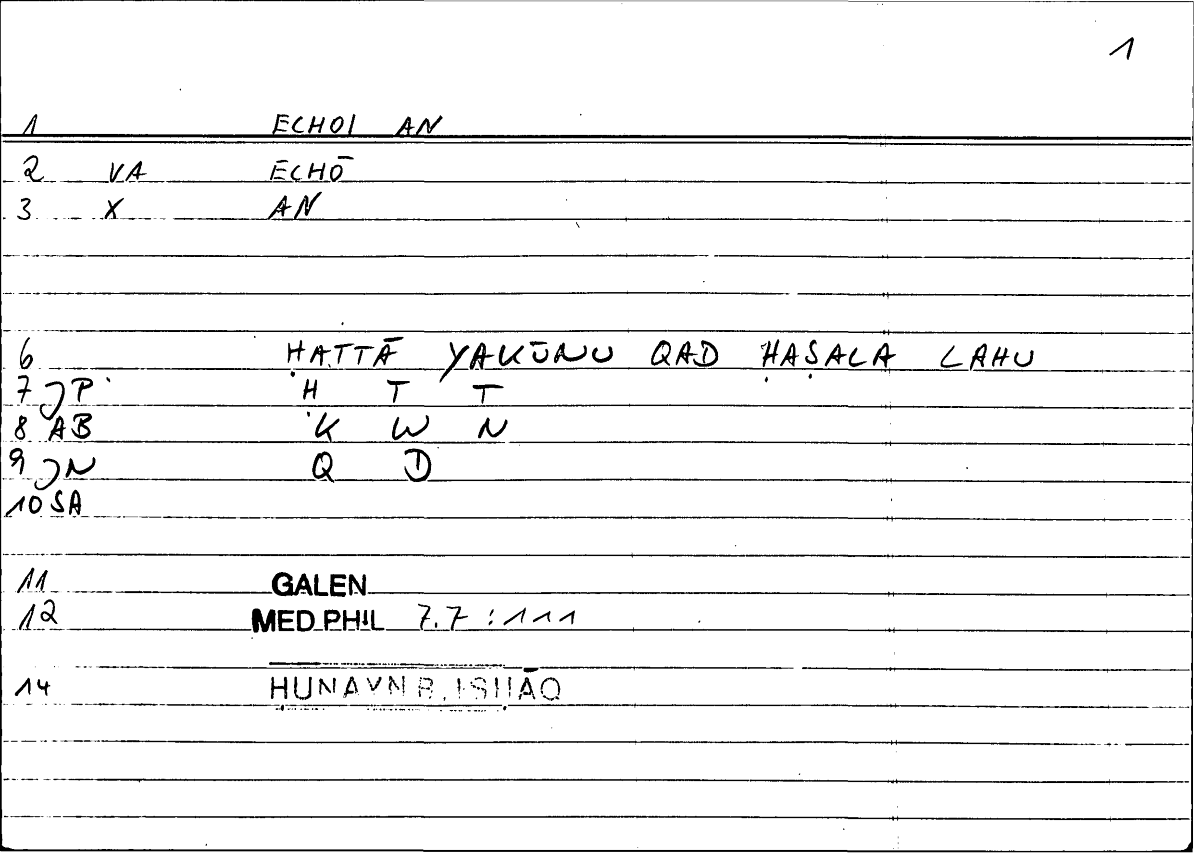 1
1 ECHOI AN
2 VA ECHŌ
3 X AN
6 ḤATTĀ YAKŪNU QAD ḤAṢALA LAHU
7 JP Ḥ T T
8 AB K W N
9 JN Q D
10 SA
11 GALEN
12 MED PHIL 7.7 : 111
14 ḤUNAYN B. ISḤĀQ